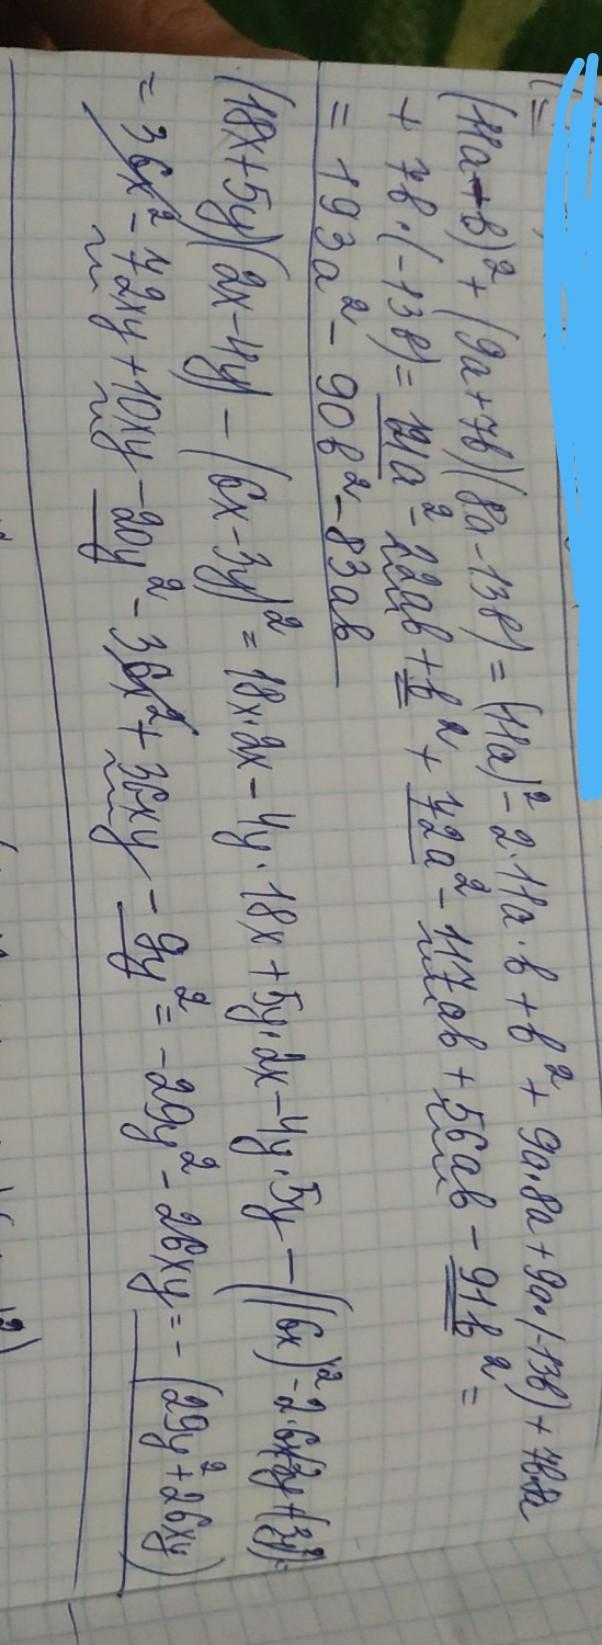 (11a-b)² + (9a+7b)(8a-13b) = (11a)² - 2·11a·b + b² + 9a·8a + 9a·(-13b) + 7b·8a
+ 7b·(-13b) = 121a² - 22ab + b² + 72a² - 117ab + 56ab - 91b² =
= 193a² - 90b² - 83ab
(18x+5y)(2x-4y) - (6x-3y)² = 18x·2x - 4y·18x + 5y·2x - 4y·5y - ((6x)² - 2·6x·3y + (3y)²) =
= 36x² - 72xy + 10xy - 20y² - 36x² + 36xy - 9y² = -29y² - 26xy = - (29y² + 26xy)